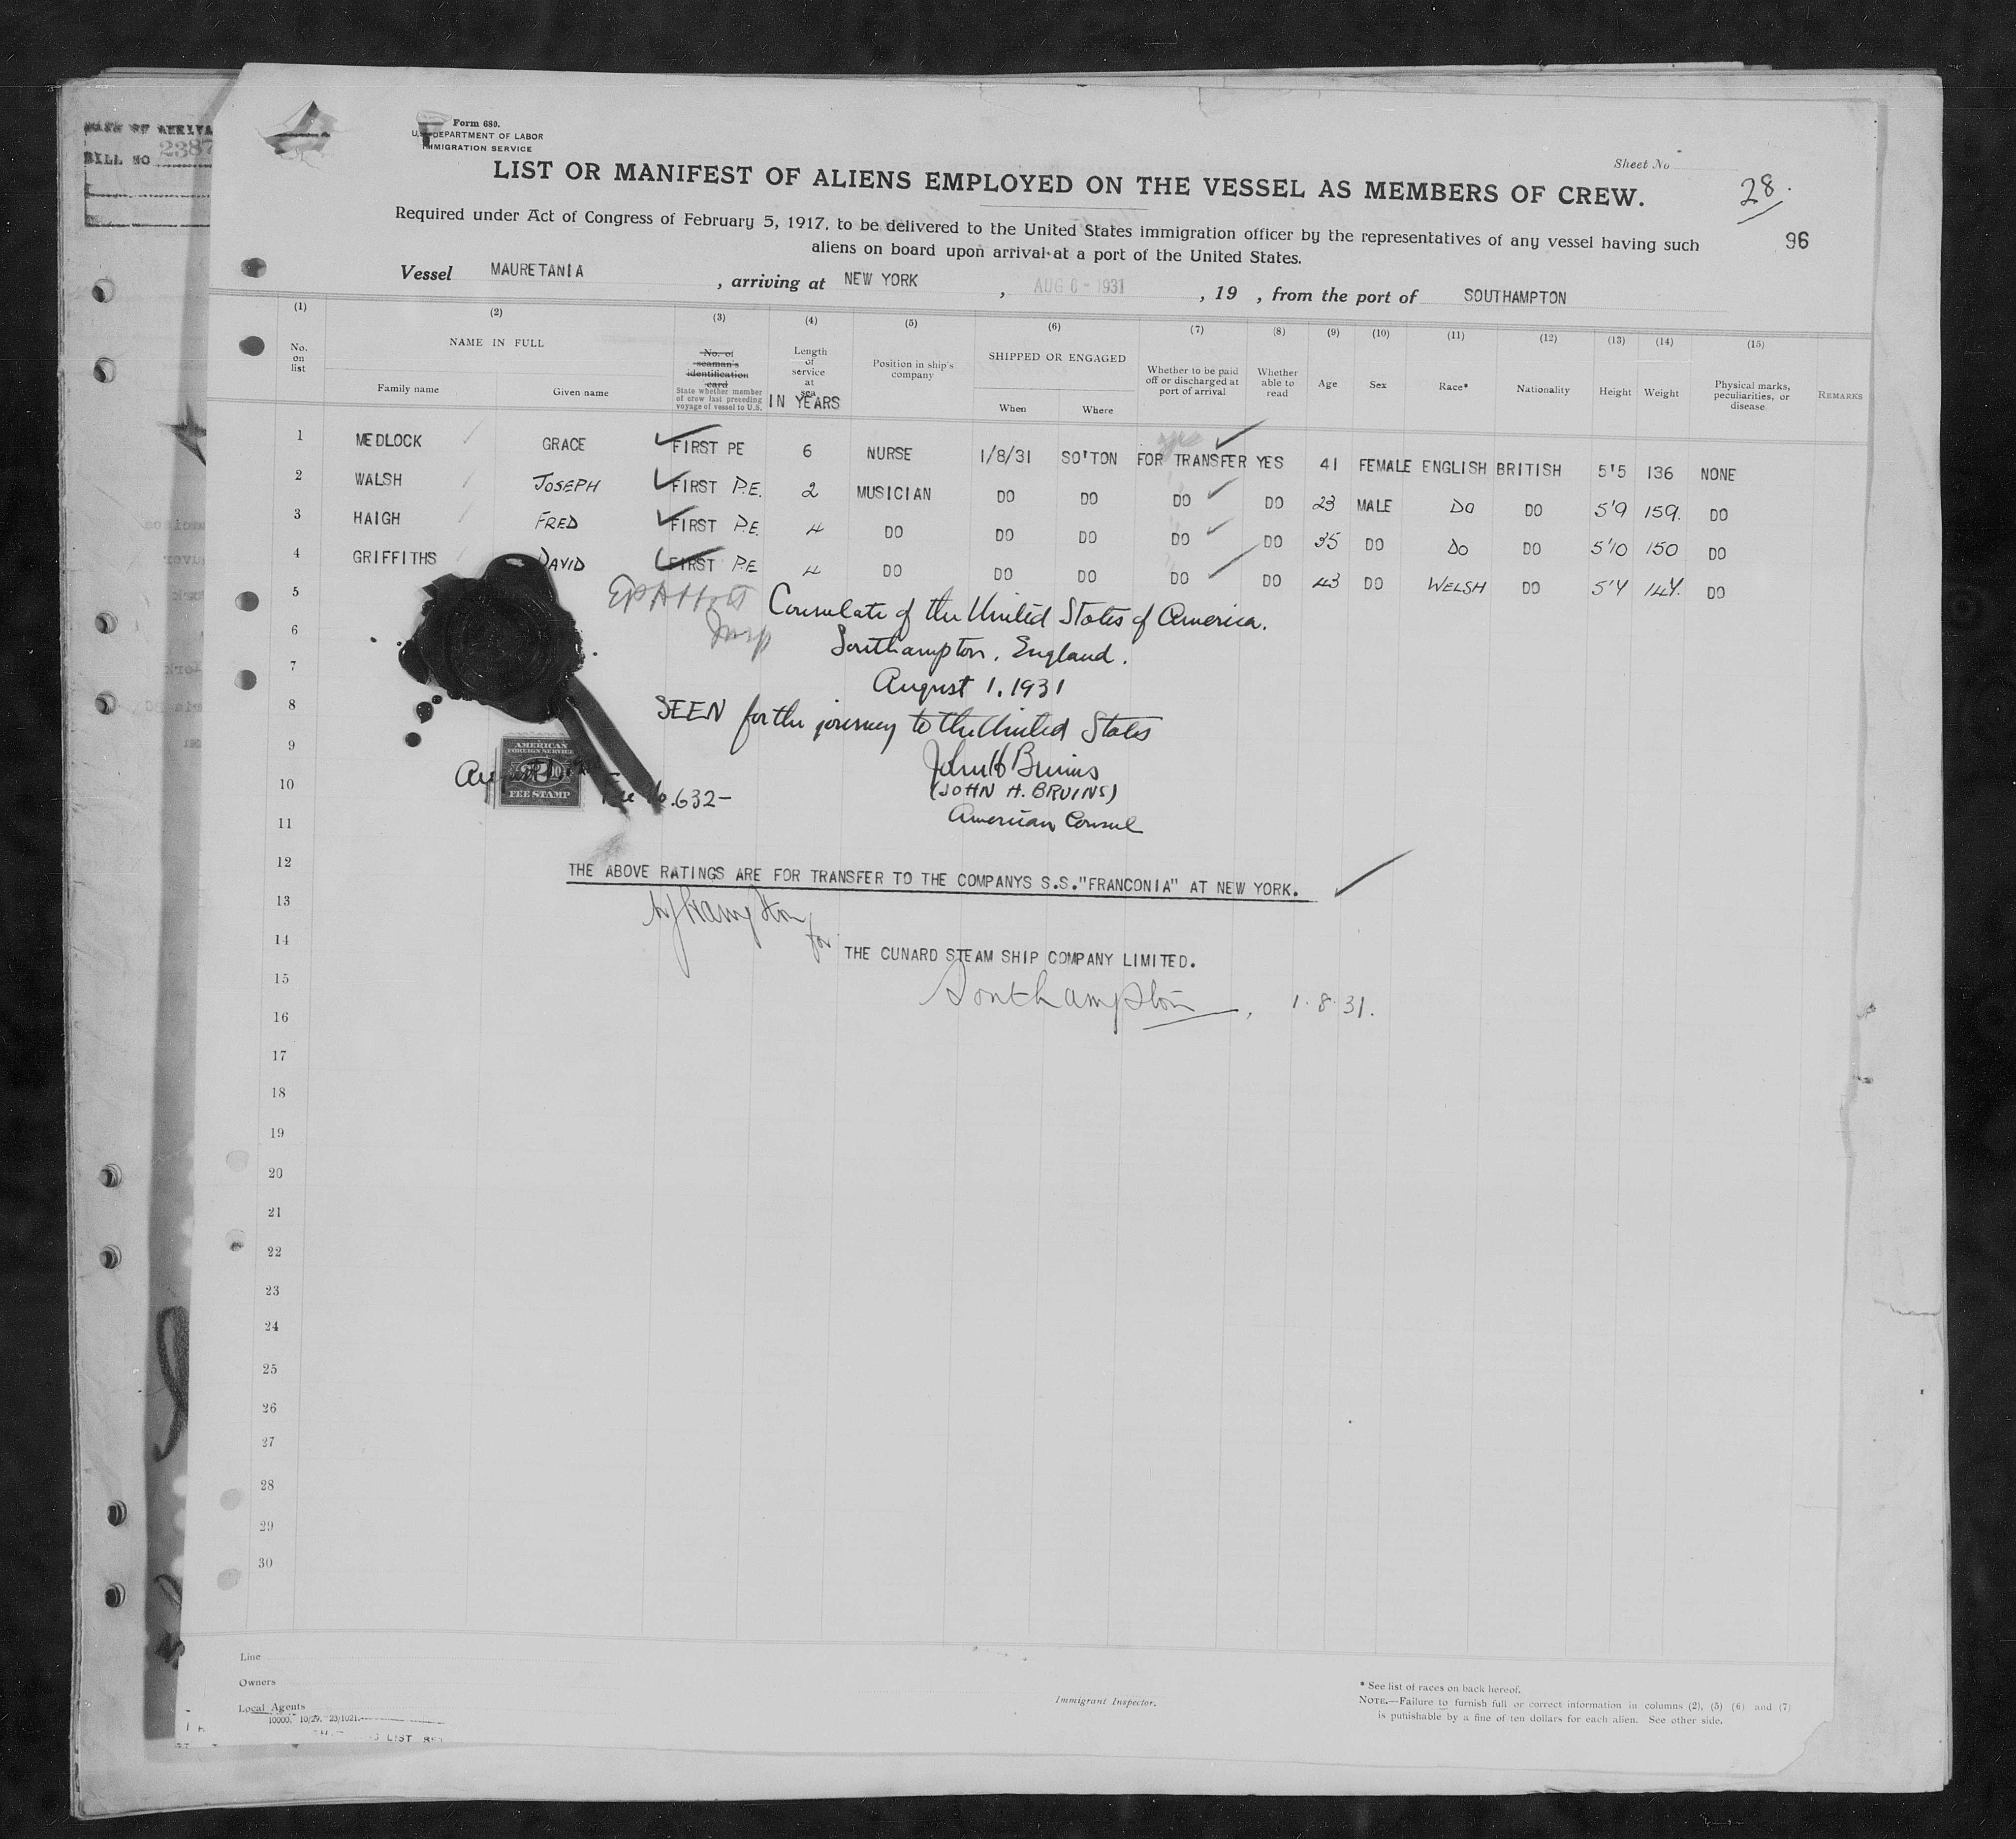 BILL NO 2387
Form 680.
U.S. DEPARTMENT OF LABOR
IMMIGRATION SERVICE
Sheet No
LIST OR MANIFEST OF ALIENS EMPLOYED ON THE VESSEL AS MEMBERS OF CREW.
28.
Required under Act of Congress of February 5, 1917, to be delivered to the United States immigration officer by the representatives of any vessel having such
aliens on board upon arrival at a port of the United States.
96
Vessel MAURETANIA , arriving at NEW YORK , AUG 6 - 1931 , 19 , from the port of SOUTHAMPTON
(1) (2) (3) (4) (5) (6) (7) (8) (9) (10) (11) (12) (13) (14) (15)
No. on list
NAME IN FULL
Family name
Given name
No. of seaman's identification card
State whether member of crew last preceding voyage of vessel to U.S.
Length of service at sea
IN YEARS
Position in ship's company
SHIPPED OR ENGAGED
When
Where
Whether to be paid off or discharged at port of arrival
Whether able to read
Age
Sex
Race*
Nationality
Height
Weight
Physical marks, peculiarities, or disease
REMARKS
1 MEDLOCK GRACE FIRST PE 6 NURSE 1/8/31 SO'TON FOR TRANSFER YES 41 FEMALE ENGLISH BRITISH 5'5 136 NONE
2 WALSH JOSEPH FIRST P.E. 2 MUSICIAN DO DO DO DO 23 MALE DO DO 5'9 159. DO
3 HAIGH FRED FIRST P.E. 4 DO DO DO DO DO 35 DO DO DO 5'10 150 DO
4 GRIFFITHS DAVID FIRST P.E 4 DO DO DO DO DO 43 DO WELSH DO 5'4 144. DO
5
Consulate of the United States of America.
6
Southampton, England.
7
August 1, 1931
8
SEEN for the journey to the United States
9
John H Bruins
10
(JOHN H. BRUINS)
11
American Consul
AMERICAN
FOREIGN SERVICE
FEE STAMP
August
Fee No. 632-
12
THE ABOVE RATINGS ARE FOR TRANSFER TO THE COMPANYS S.S."FRANCONIA" AT NEW YORK.
13
for
14
THE CUNARD STEAM SHIP COMPANY LIMITED.
15
Southampton, 1.8.31.
16
17
18
19
20
21
22
23
24
25
26
27
28
29
30
Line
Owners
Local Agents
10000, 10/29. 23/1021.
Immigrant Inspector.
* See list of races on back hereof.
NOTE.—Failure to furnish full or correct information in columns (2), (5) (6) and (7)
is punishable by a fine of ten dollars for each alien. See other side.